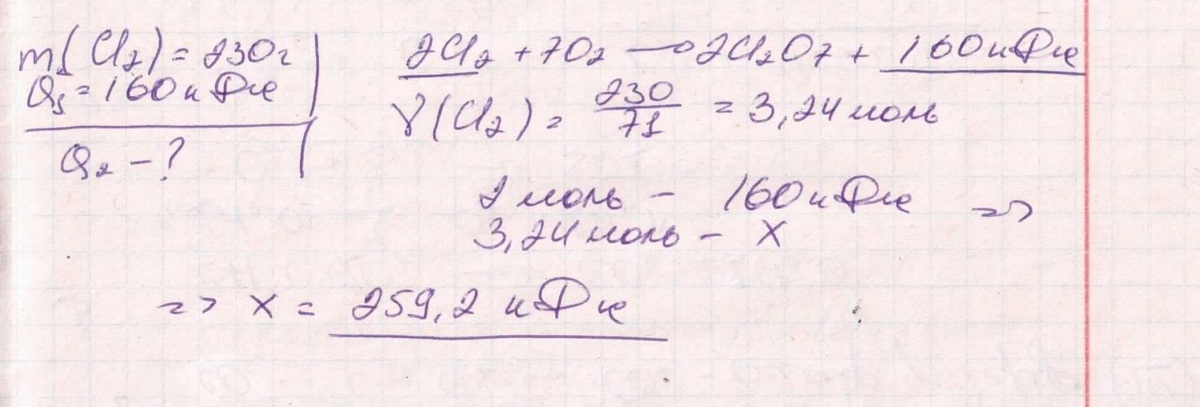 m(Cl₂) = 230г
Q₁ = 160 кДж
Q₂ - ?
2Cl₂ + 7O₂ → 2Cl₂O₇ + 160 кДж
γ(Cl₂) = 230/71 = 3,24 моль
2 моль - 160 кДж =>
3,24 моль - X
=> X = 259,2 кДж